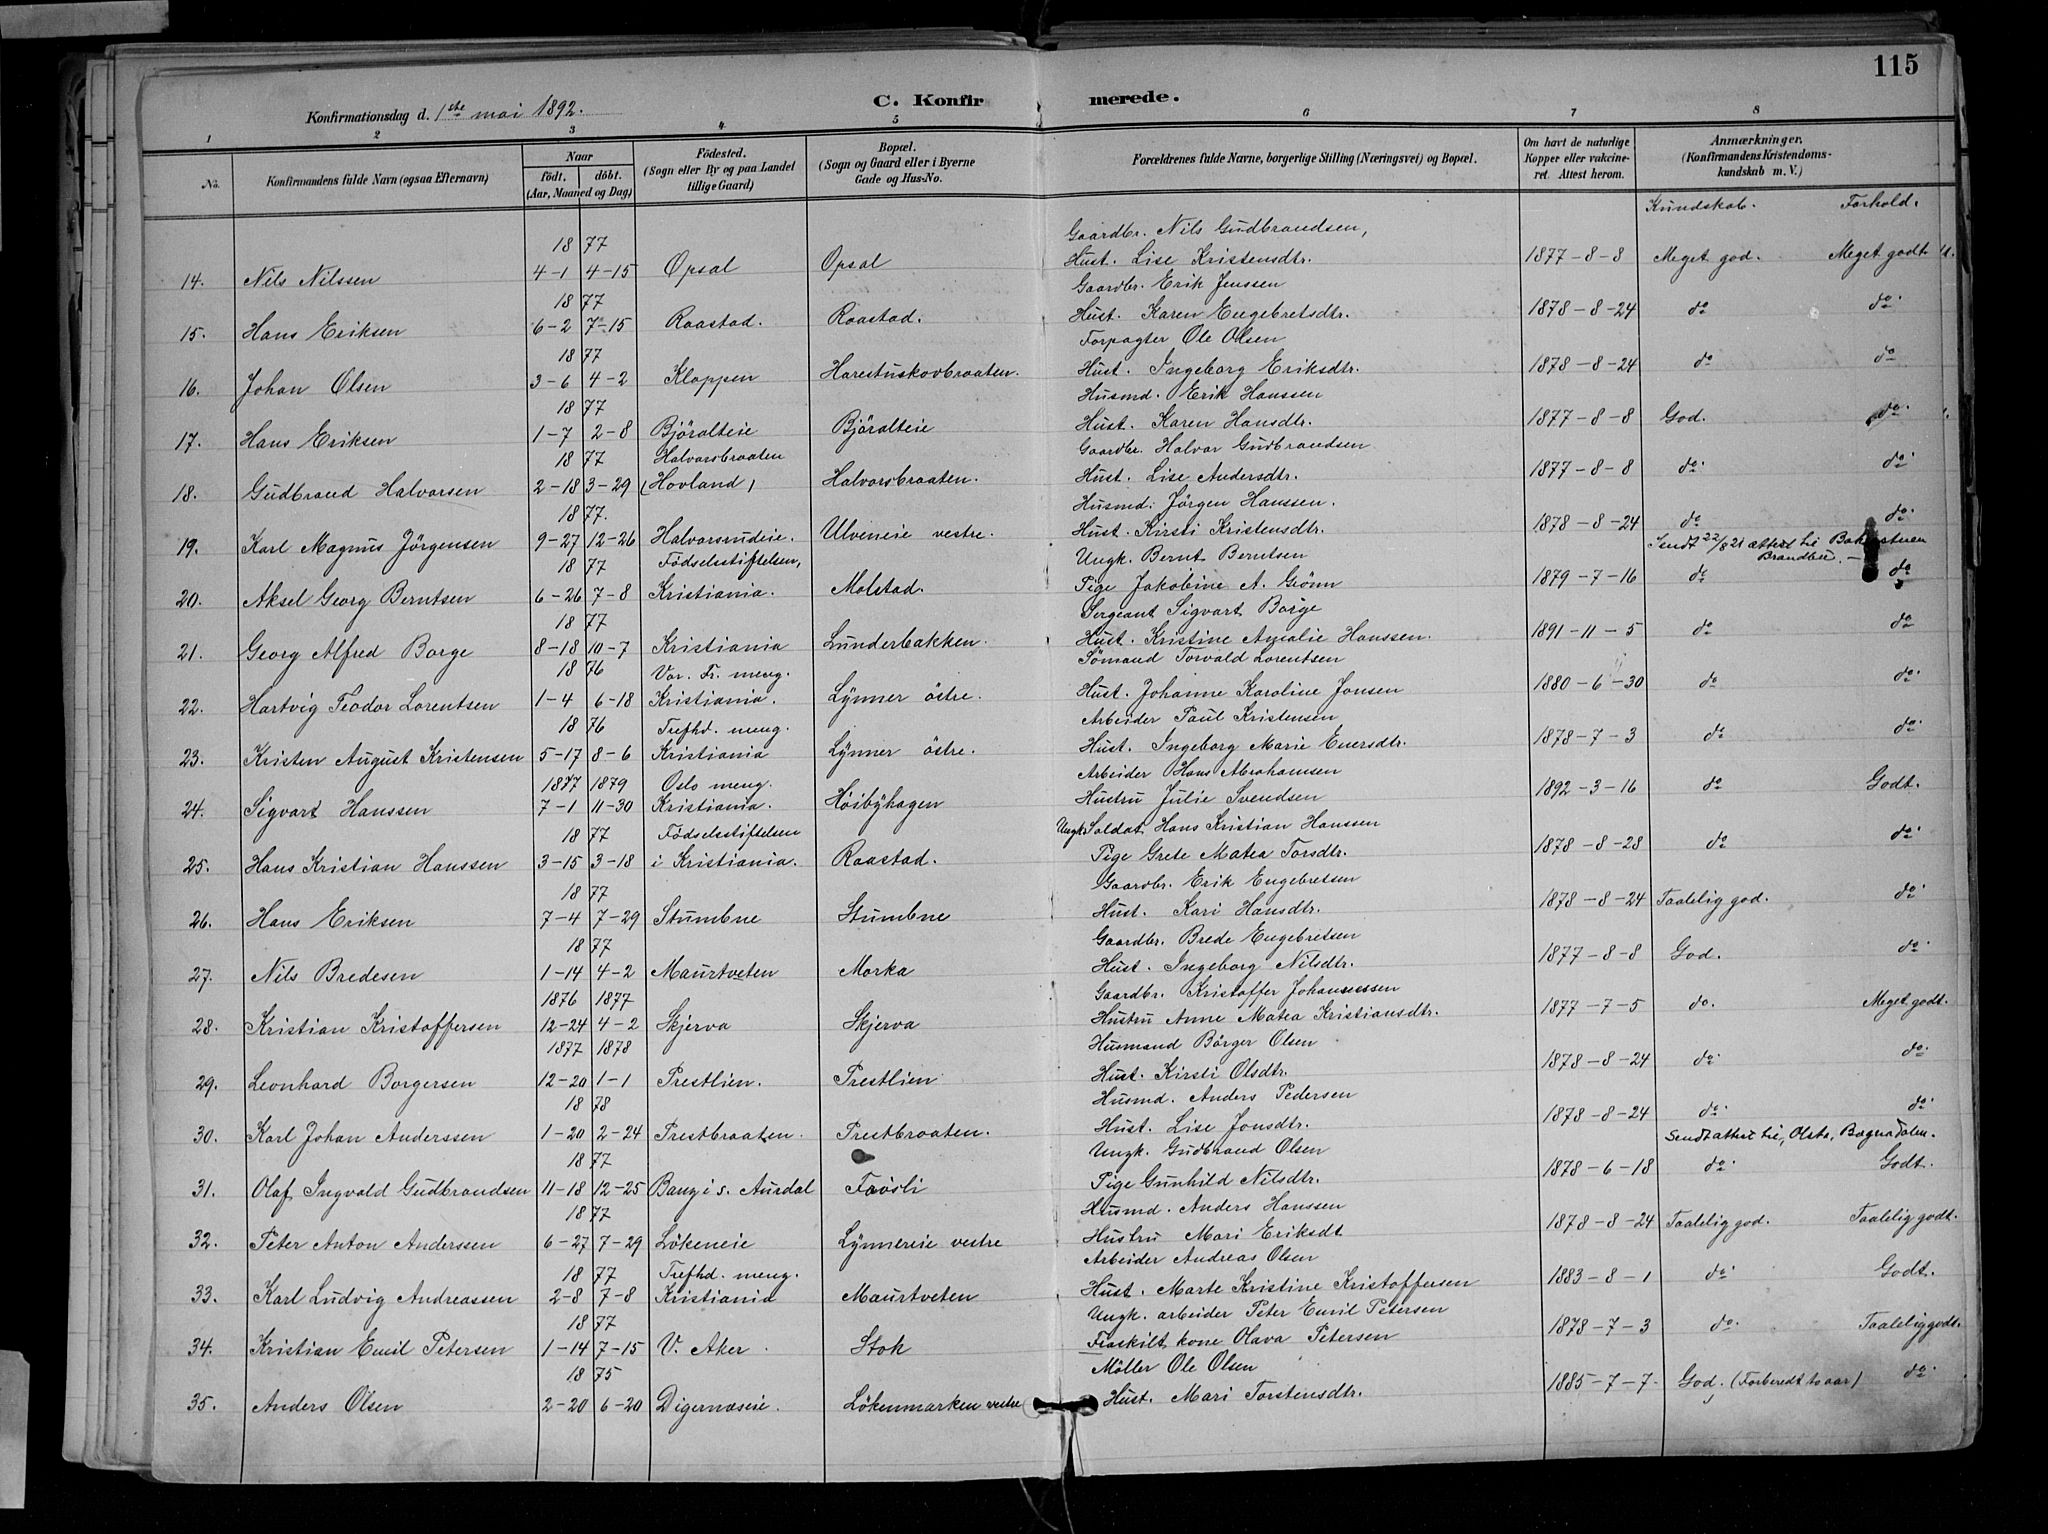 115
Konfirmationsdag d. 1ste mai 1892.
C. Konfirmerede.
1 2 3 4 5 6 7 8
No. Konfirmandens fulde Navn (ogsaa Efternavn) Naar født, døbt. (Aar, Maaned og Dag) Fødested. (Sogn eller By og paa Landet tillige Gaard) Bopæl. (Sogn og Gaard eller i Byerne Gade og Hus-No. Forældrenes fulde Navne, borgerlige Stilling (Næringsvei) og Bopæl. Om havt de naturlige Kopper eller vakcineret. Attest herom. Anmærkninger. (Konfirmandens Kristendomskundskab m. V.)
Kundskab. Forhold.
1877 Gaardbr. Nils Gudbrandsen,
14. Nils Nilssen 4-1 4-15 Opsal Opsal Hust. Lise Kristensdtr. 1877-8-8 Meget god. Meget godt
1877 Gaardbr. Erik Jenssen
15. Hans Eriksen 6-2 7-15 Raastad. Raastad. Hust. Karen Engebretsdtr. 1878-8-24 do do
1877 Forpagter Ole Olsen
16. Johan Olsen 3-6 4-2 Kloppen Harestuskovbraaten. Hust. Ingeborg Eriksdtr. 1878-8-24 do do
1877 Husmd. Erik Hanssen
17. Hans Eriksen 1-7 2-8 Björalteie Björalteie Hust. Karen Hansdtr. 1877-8-8 God. do
1877 Halvorsbraaten Gaardbr. Halvor Gudbrandsen
18. Gudbrand Halvorsen 2-18 3-29 (Hovland) Halvorsbraaten. Hust. Lise Andersdtr. 1877-8-8 do do
1877. Husmd. Jörgen Hanssen.
19. Karl Magnus Jörgensen 9-27 12-26 Halvorsrudeie. Ulveneie vestre. Hust. Kirsti Kristensdtr. 1878-8-24 do do
1877 Födselsstiftelsen, Ungk. Bernt Berntsen Sendt 22/8 21 attest til Brandbu.
20. Aksel Georg Berntsen 6-26 7-8 Kristiania. Molstad. Pige Jakobine A. Grönn 1879-7-16 do do
1877 Sergeant Sigvart Borge
21. Georg Alfred Borge 8-18 10-7 Kristiania Lunderbakken. Hust. Kristine Amalie Hanssen. 1891-11-5 do do
1876 Vor. Fr. meng. Sömand Torvald Lorentsen
22. Hartvig Teodor Lorentsen 1-4 6-18 Kristiania. Lynner östre. Hust. Johanne Karoline Jonsen 1880-6-30 do do
1876 Trefhd. meng. Arbeider Paul Kristensen
23. Kristen August Kristensen 5-17 8-6 Kristiania Lynner östre. Hust. Ingeborg Marie Enersdtr. 1878-7-3 do do
1877 1879 Oslo meng. Arbeider Hans Abrahamsen
24. Sigvart Hanssen 7-1 11-30 Kristiania. Höibyhagen Hustru Julie Svendsen 1892-3-16 do Godt.
1877 Födselsstiftelsen Ungk. Soldat Hans Kristian Hanssen
25. Hans Kristian Hanssen 3-15 3-18 i Kristiania. Raastad. Pige Grete Matea Torsdtr. 1878-8-28 do do
1877 Gaardbr. Erik Engebretsen
26. Hans Eriksen 7-4 7-29 Stumbne Stumbne Hust. Kari Hansdtr. 1878-8-24 Taalelig god. do
1877 Gaardbr. Brede Engebretsen
27. Nils Bredesen 1-14 4-2 Maurtveten Morka Hust. Ingeborg Nilsdtr. 1877-8-8 God. do
1876 1877 Gaardbr. Kristoffer Johannessen
28. Kristian Kristoffersen 12-24 4-2 Skjerva Skjerva Hustru Anne Matea Kristiansdtr. 1877-7-5 do. Meget godt.
1877 1878 Husmand Börger Olsen
29. Leonhard Borgersen 12-20 1-1 Prestlien. Prestlien Hust. Kirsti Olsdtr. 1878-8-24 do do
1878 Husmd. Anders Pedersen
30. Karl Johan Anderssen 1-20 2-24 Prestbraaten. Prestbraaten. Hust. Lise Jonsdtr. 1878-8-24 do do
1877 Ungk. Gudbrand Olsen Sendt attest til, Olsta, Bagnadalen.
31. Olaf Ingvald Gudbrandsen 11-18 12-25 Bang i s. Aurdal Favsli Pige Gunhild Nilsdtr. 1878-6-18 do Godt.
1877 Husmd. Anders Hanssen
32. Peter Anton Anderssen 6-27 7-29 Lökeneie Lynnereie vestre Hustru Mari Eriksdt 1878-8-24 Taalelig god. Taalelig godt.
1877 Trefhd. meng. Arbeider Andreas Olsen
33. Karl Ludvig Andreassen 2-8 7-8 Kristiania Maurtveten Hust. Marte Kristine Kristoffersen 1883-8-1 do Godt.
1877 Ungk. arbeider Peter Emil Petersen
34. Kristian Emil Petersen 1-14 7-15 V. Aker Stok Fraskilt kone Olava Petersen 1878-7-3 do. Taalelig godt.
1875 Möller Ole Olsen
35. Anders Olsen 2-20 6-20 Digernæseie. Lökenmarken vestre Hust. Mari Torstensdtr. 1885-7-7. God. (Forberedt to aar) do